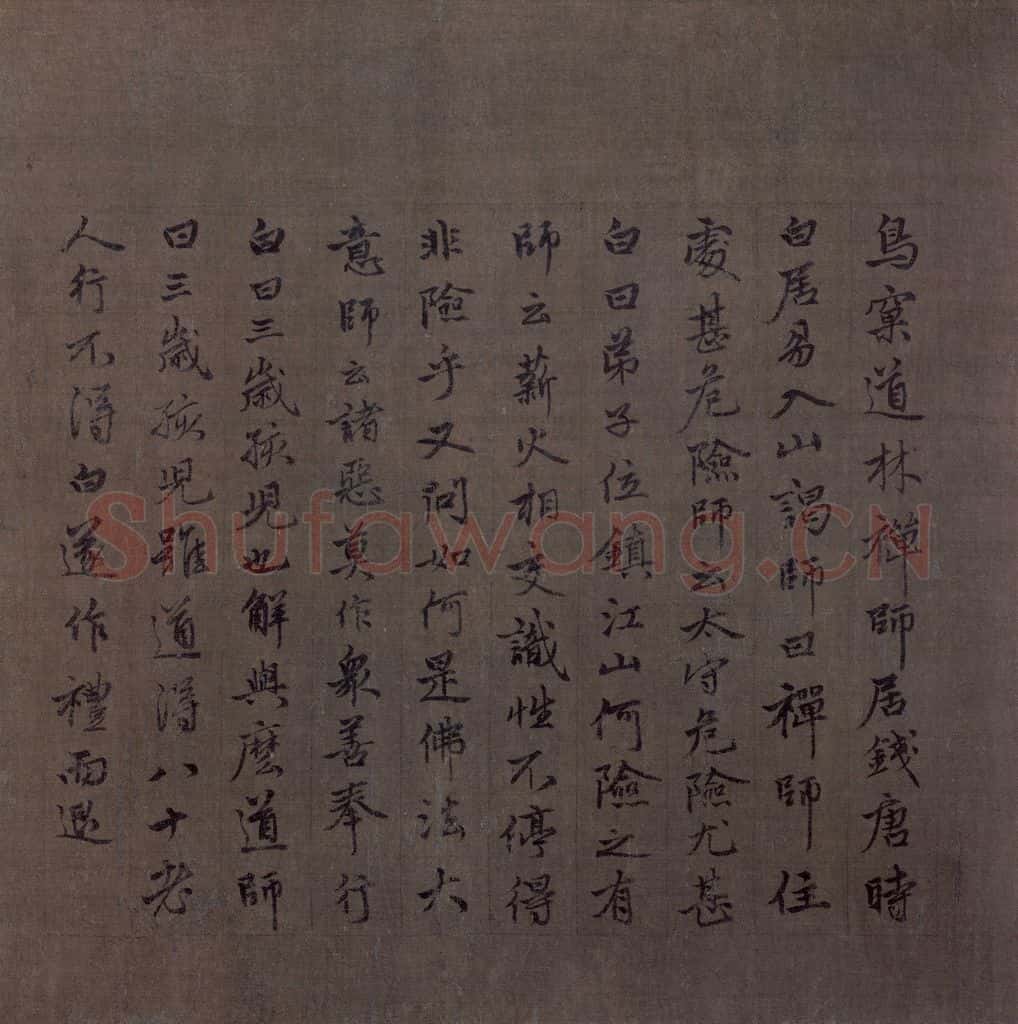 鳥窠道林禪師居錢唐時
白居易入山謁師曰禪師住
處甚危險師云太守危險尤甚
白曰弟子位鎮江山何險之有
師云薪火相交識性不停得
非險乎又問如何是佛法大
意師云諸惡莫作衆善奉行
白曰三歲孩児也解與麼道師
曰三歲孩児雖道得八十老
人行不得白遂作禮而退
Shufawang.CN